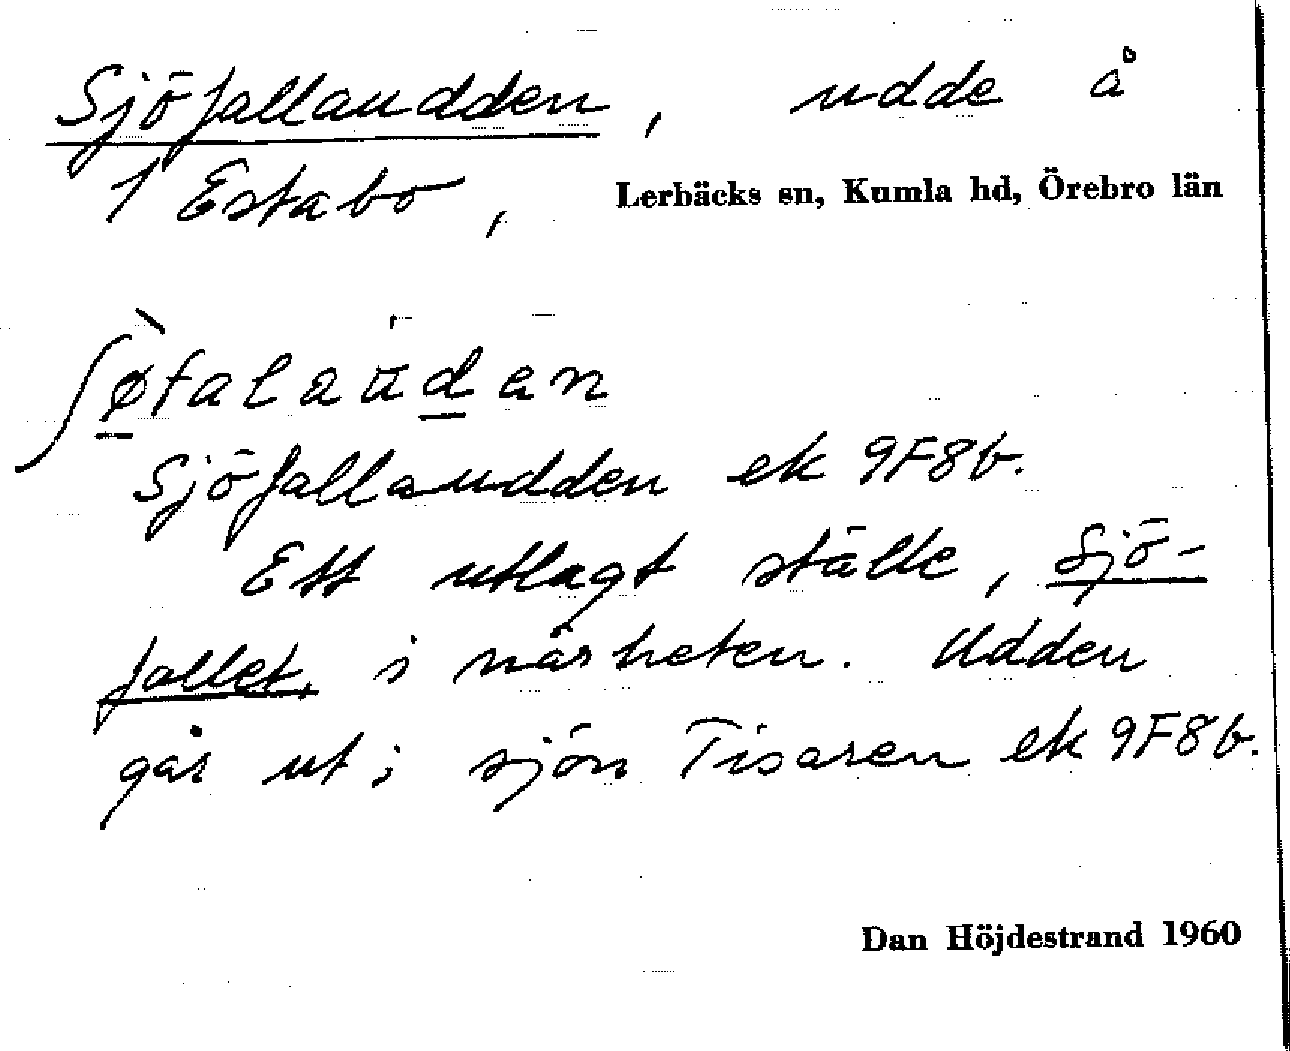 Sjöfallaudden, udde å
1 Estabo, Lerbäcks sn, Kumla hd, Örebro län
ʃø̠̀falaüd̠an
Sjöfallaudden ek 9F8b.
Ett utlagt ställe, Sjö-
fallet, i närheten. Udden
går ut i sjön Tisaren ek 9F8b.
Dan Höjdestrand 1960